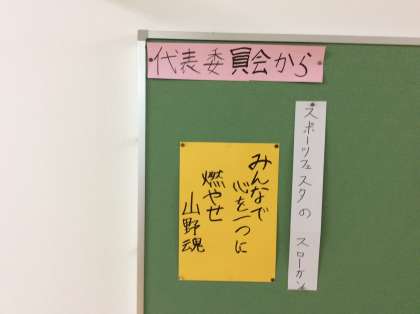 代表委員会から
スポーツフェスタの スローガン
みんなで
心を一つに
燃やせ
山野魂